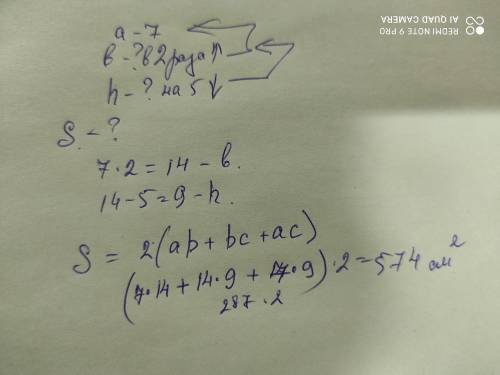 REDMI NOTE 9 PRO
AI QUAD CAMERA
a - 7
b - ? в 2 раза ↑
h - ? на 5 ↓
S - ?
7·2=14 - b.
14-5=9 - h.
S = 2(ab+bc+ac)
(7·14+14·9+7·9)·2=574 см²
287·2